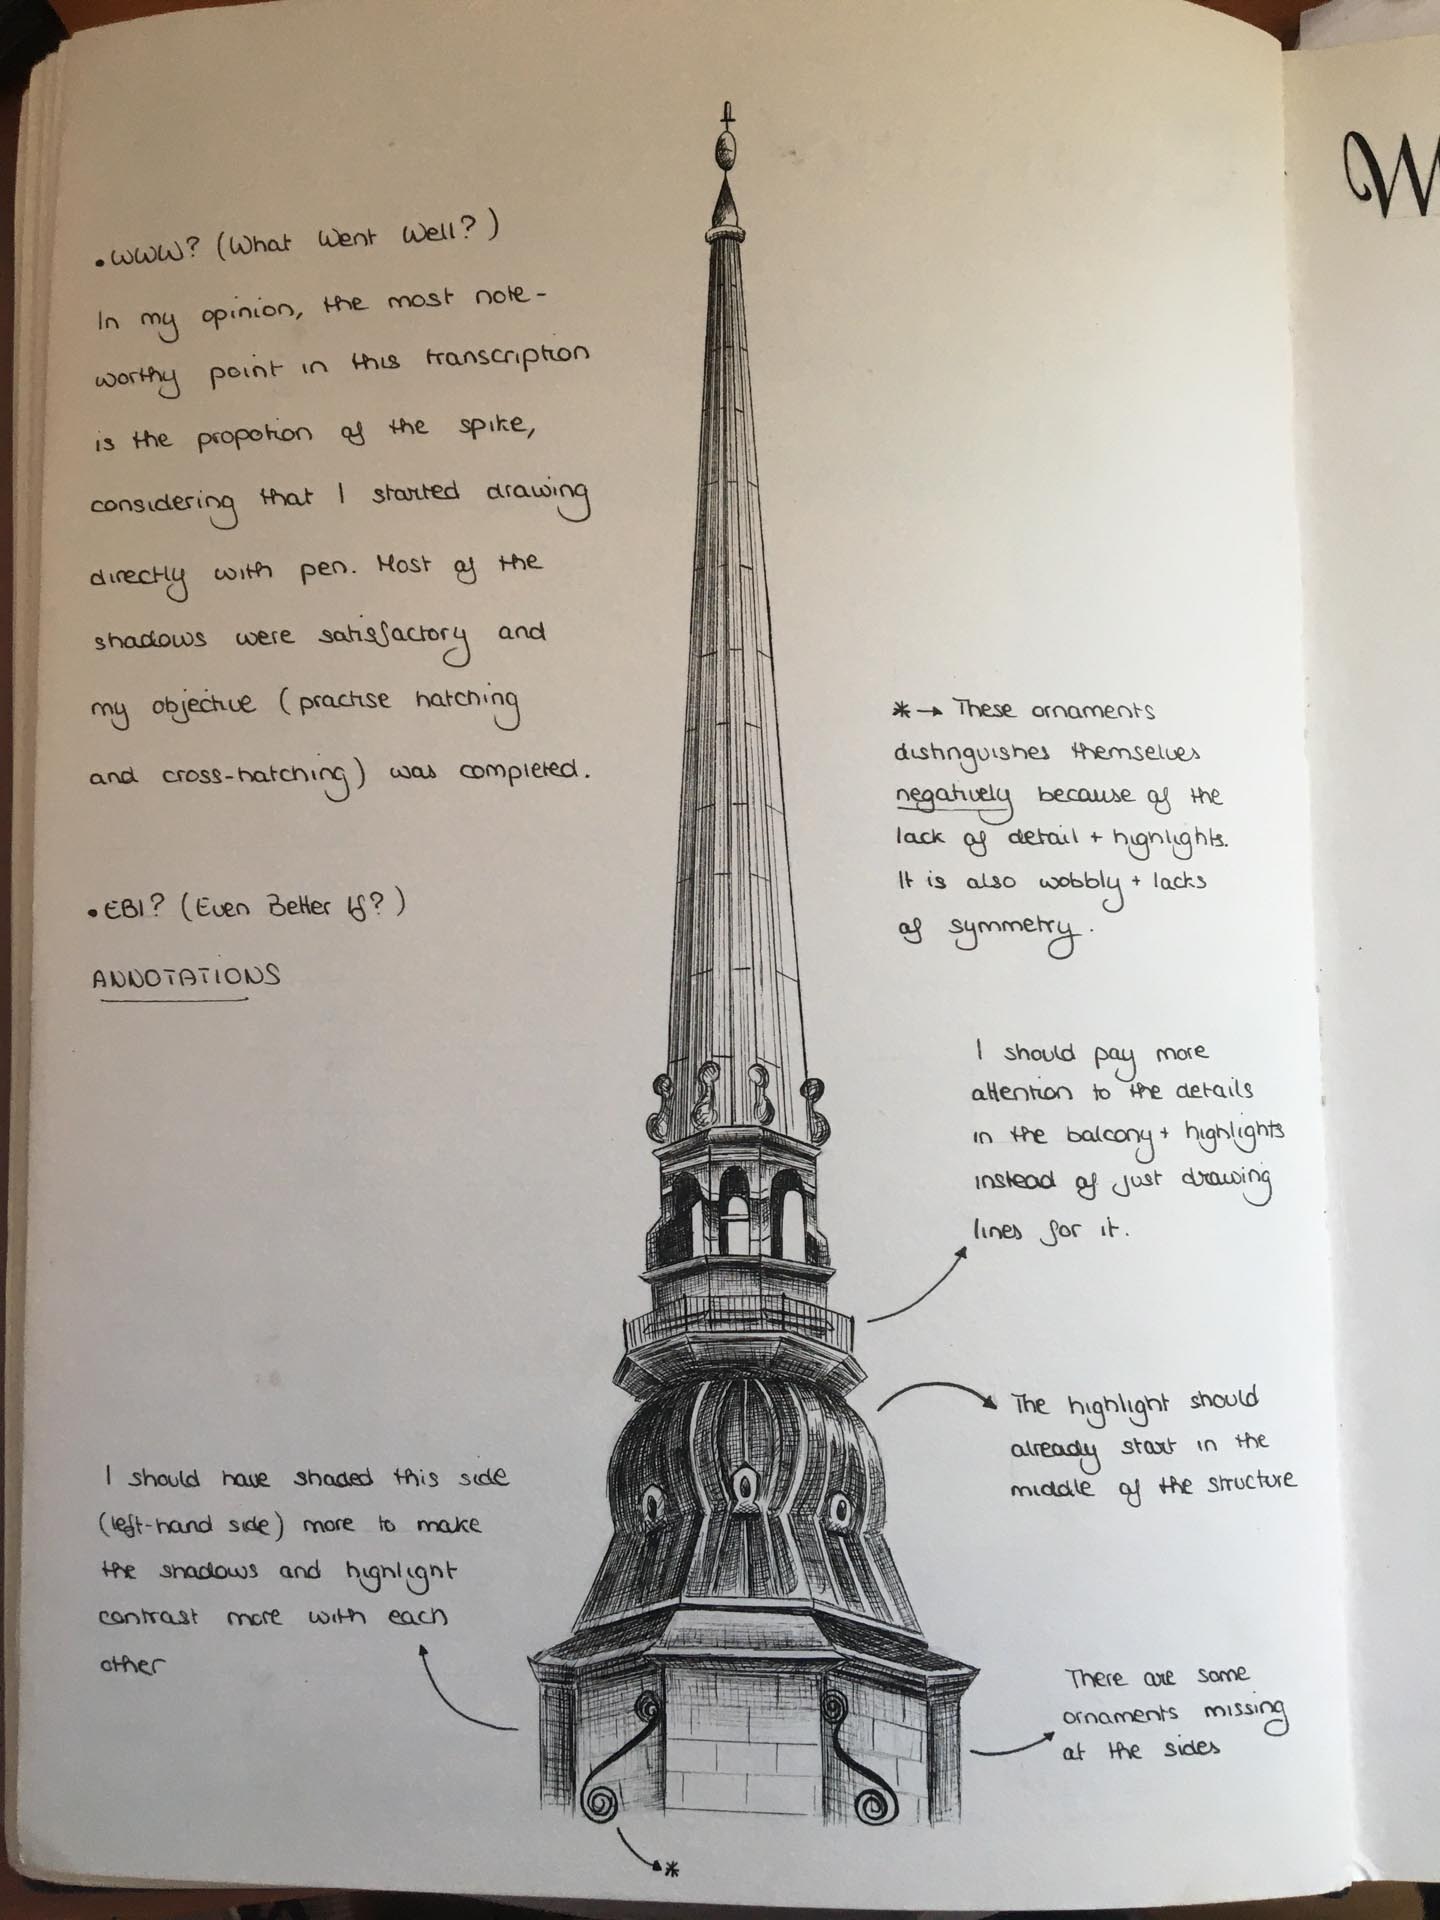 •WWW? (What Went Well?)
In my opinion, the most note-
worthy point in this transcription
is the propotion of the spike,
considering that I started drawing
directly with pen. Most of the
shadows were satisfactory and
my objective (practise hatching
and cross-hatching) was completed.
•EBI? (Even Better If?)
ANNOTATIONS
I should have shaded this side
(left-hand side) more to make
the shadows and highlight
contrast more with each
other
*→ These ornaments
distinguishes themselves
negatively because of the
lack of detail + highlights.
It is also wobbly + lacks
of symmetry.
I should pay more
attention to the details
in the balcony + highlights
instead of just drawing
lines for it.
The highlight should
already start in the
middle of the structure
There are some
ornaments missing
at the sides
*
W